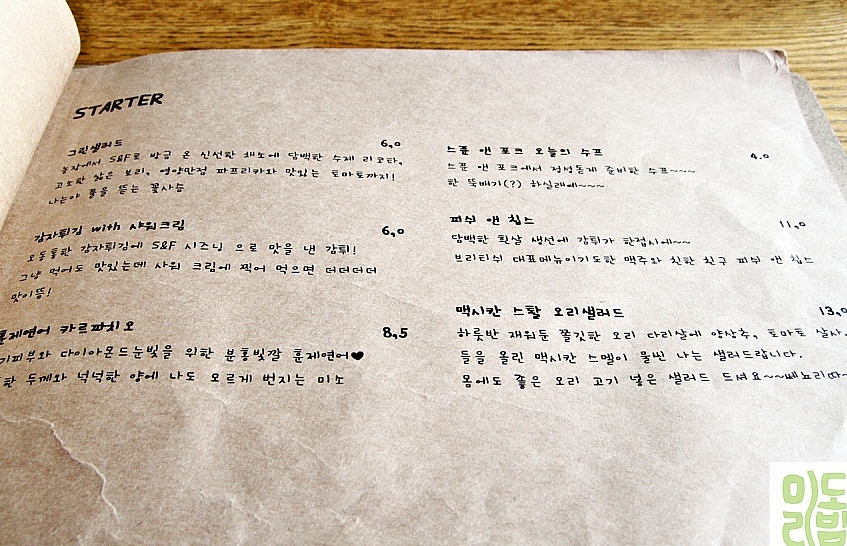 STARTER
그린샐러드 6,0
농장에서 S&F로 방금 온 신선한 채소에 담백한 수제 리코타,
고소한 삶은 보리, 영양만점 파프리카와 맛있는 토마토까지!
나는야 풀을 뜯는 꽃사슴
감자튀김 with 사워크림 6,0
오동통한 감자튀김에 S&F 시즈닝 으로 맛을 낸 감튀!
그냥 먹어도 맛있는데 사워 크림에 찍어 먹으면 더더더더
맛이쯩!
훈제연어 카르파치오 8,5
기피부와 다이아몬드눈빛을 위한 분홍빛깔 훈제연어♥
한 두께와 넉넉한 양에 나도 모르게 번지는 미소
스푼 앤 포크 오늘의 수프 4.0
스푼 앤 포크에서 정성돋게 준비한 수프~~~
한 뚝배기(?) 하실래예~~~
피쉬 앤 칩스 11,0
담백한 흰살 생선에 감튀가 한접시에~~
브리티쉬 대표메뉴이기도한 맥주와 친한 친구 피쉬 앤 칩스
맥시칸 스퇄 오리샐러드 13,0
하룻반 재워둔 쫄깃한 오리 다리살에 양상추, 토마토 살사.
들을 올린 맥시칸 스멜이 물씬 나는 샐러드랍니다.
몸에도 좋은 오리 고기 넣은 샐러드 드셔요~~쎄뇨리따~
미도리밥